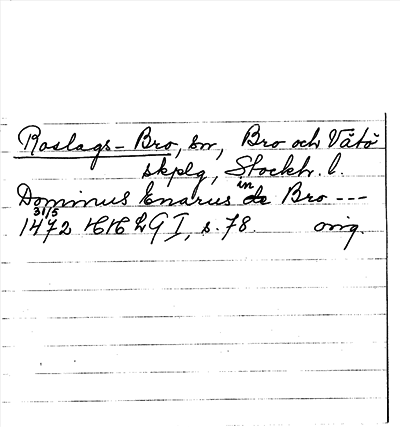 Roslags-Bro, sn, Bro och Vätö
skplg, Stockh. l.
Dominus Enarus in de Bro ---
31/5
1472 HH LG I, s. 78. orig.